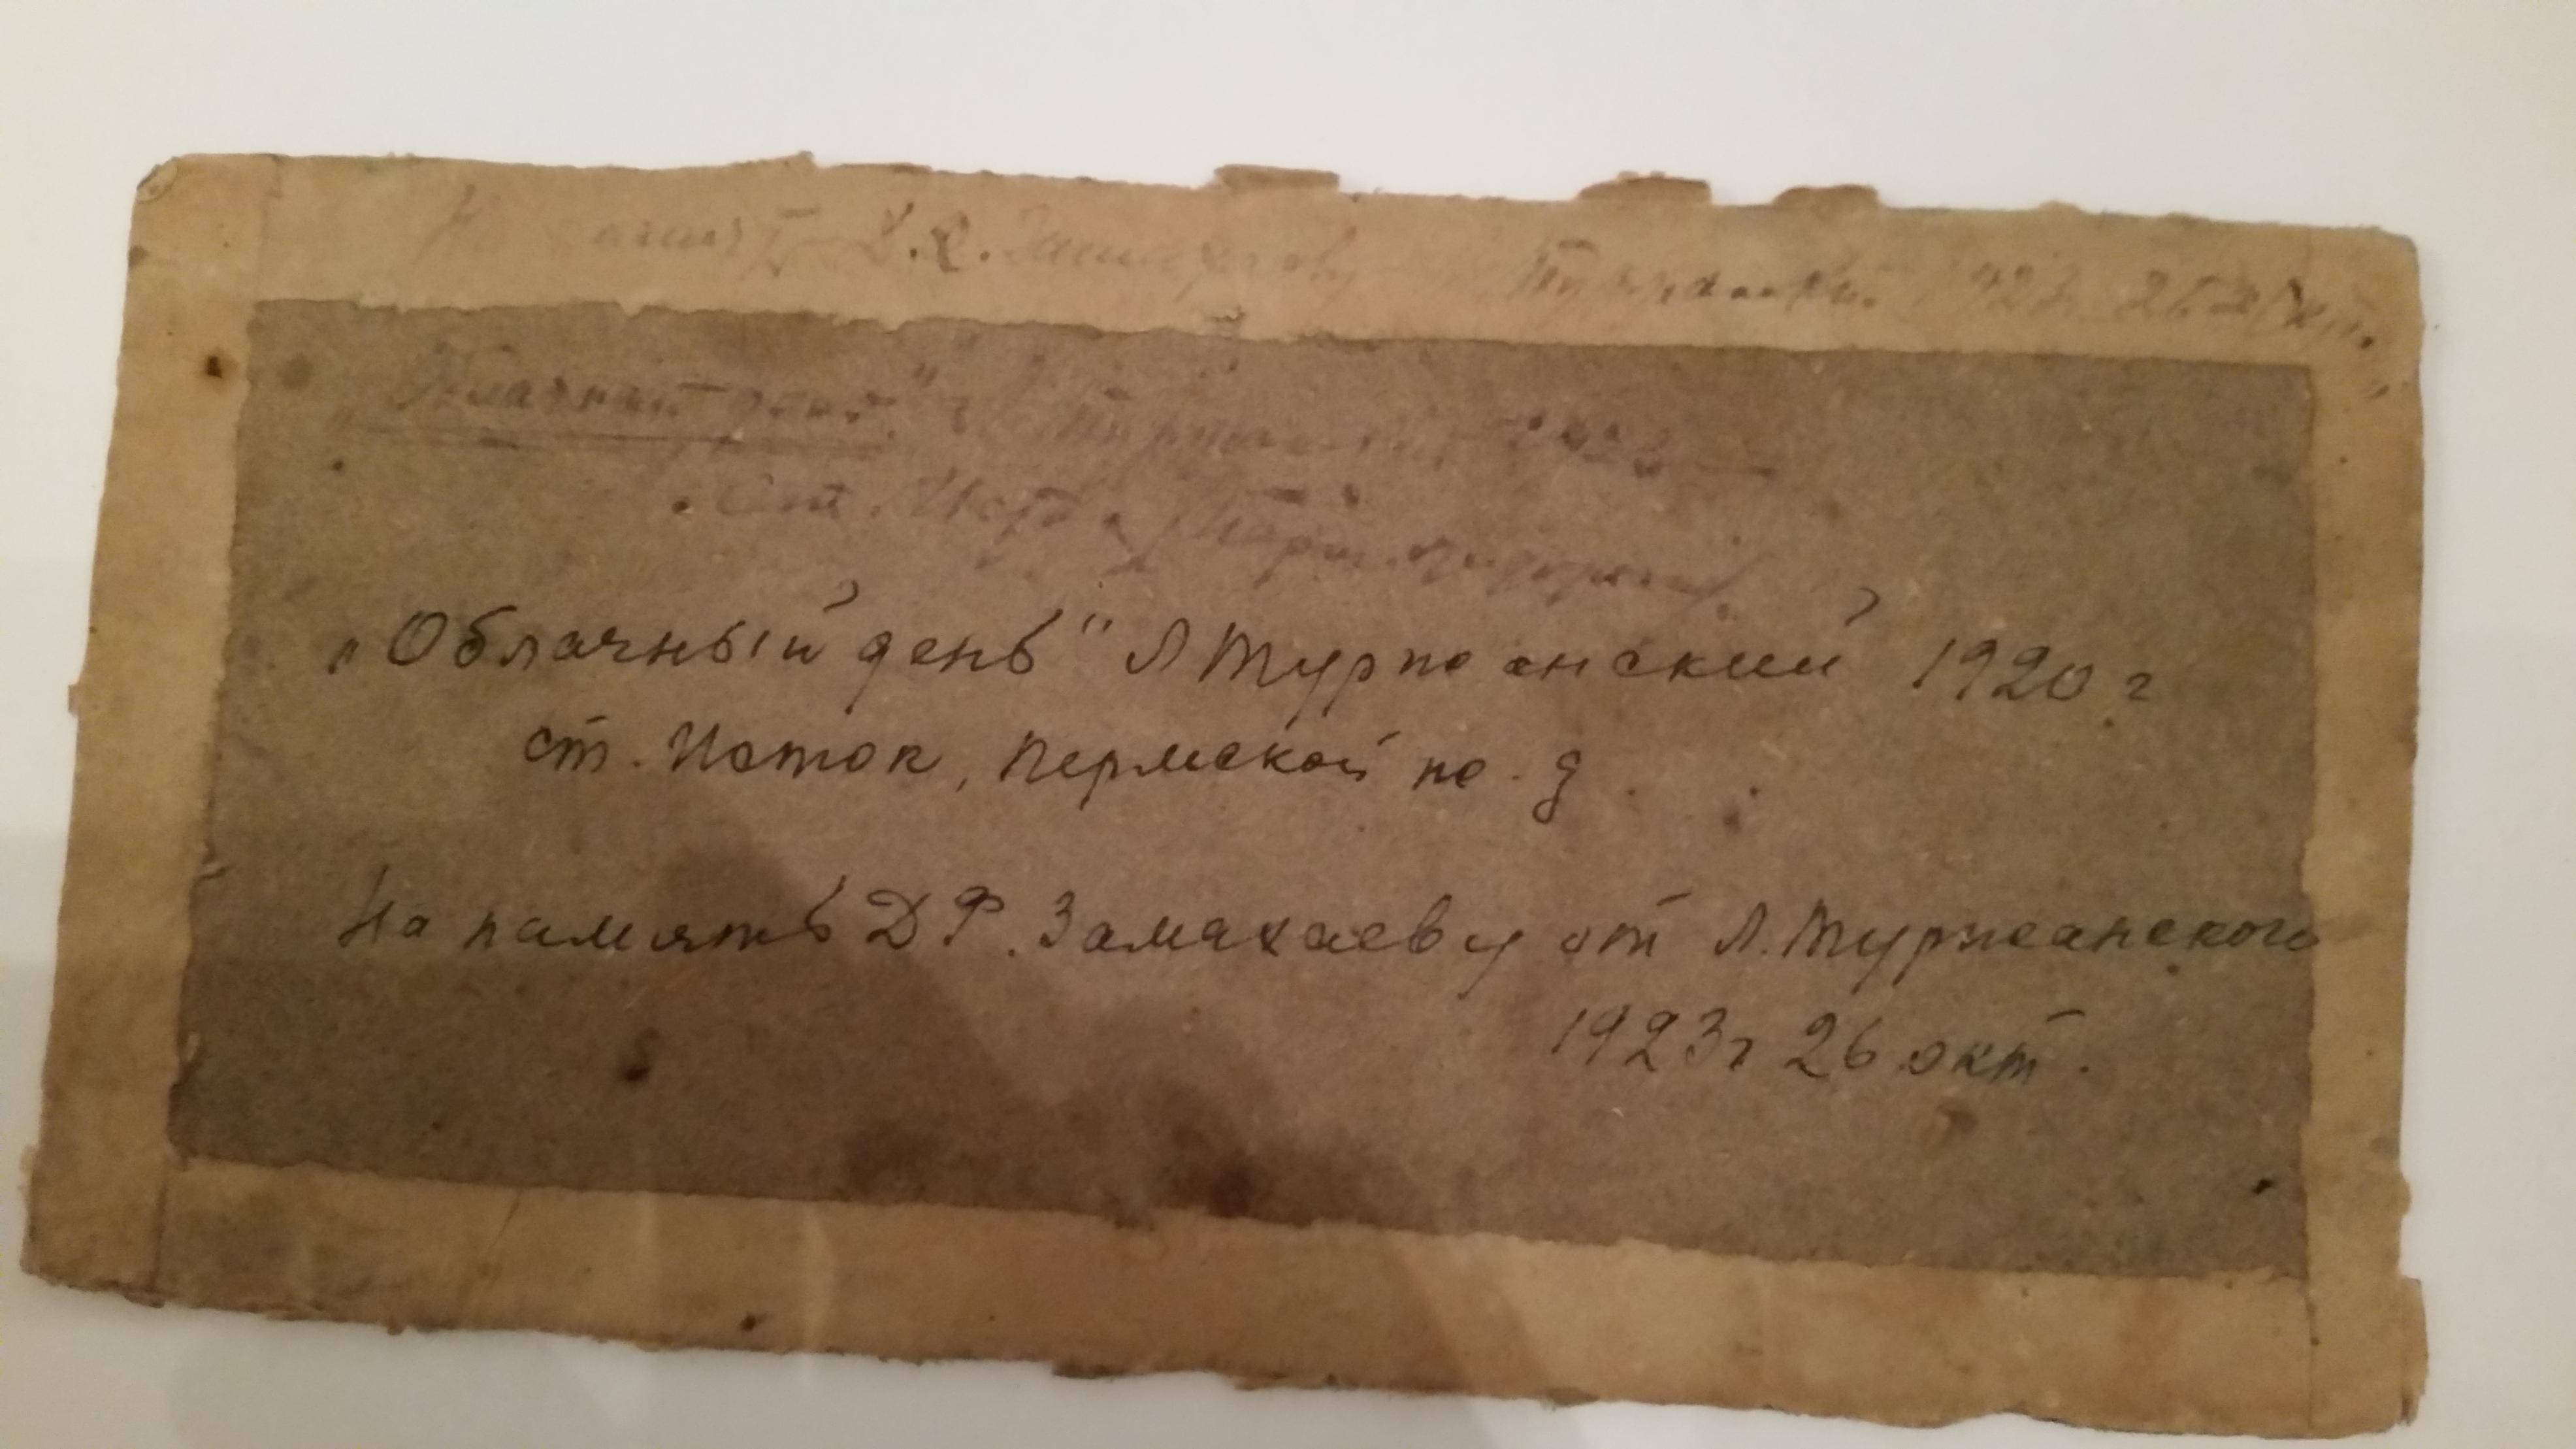 На память Д.Ф. Замахаеву Туржанский 1923 26 Окт.
„Облачный день" Л. Туржанский 1920
Ст. Исток, Перм.
„Облачный день" Л Туржанский 1920 г
ст. Исток, Пермской ж. д.
На память Д Ф. Замахаеву от Л. Туржанского
1923 г 26 окт.